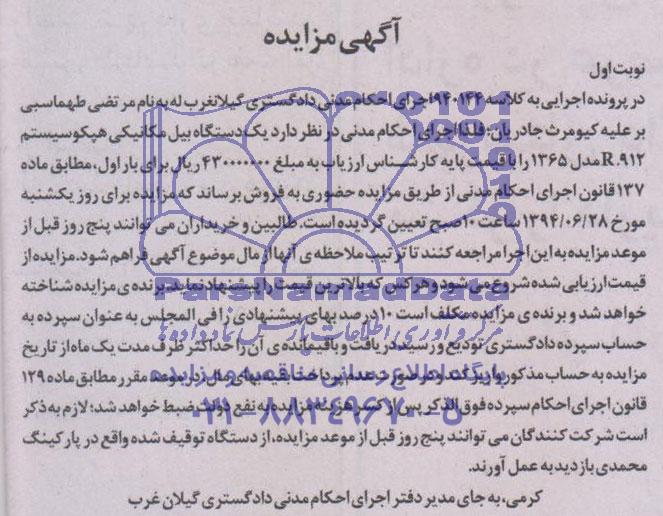 آگهی مزایده
نوبت اول
در پرونده اجرایی به کلاسه ۹۴۰۱۴۴ اجرای احکام مدنی دادگستری گیلانغرب له به نام مرتضی طهماسبی
بر علیه کیومرث جادریان: فلذا اجرای احکام مدنی در نظر دارد یک دستگاه بیل مکانیکی هپکو سیستم
R.۹۱۲ مدل ۱۳۶۵ را با قیمت پایه کارشناس ارزیاب به مبلغ ۴۳۰۰۰۰۰۰۰ ریال برای بار اول، مطابق ماده
۱۳۷ قانون اجرای احکام مدنی از طریق مزایده حضوری به فروش برساند که مزایده برای روز یکشنبه
مورخ ۱۳۹۴/۰۶/۲۸ ساعت ۱۰ صبح تعیین گردیده است. طالبین و خریداران می توانند پنج روز قبل از
موعد مزایده به این اجرا مراجعه کنند تا ترتیب ملاحظه ی آنها از مال موضوع آگهی فراهم شود. مزایده از
قیمت ارزیابی شده شروع می شود و هر کس که بالاترین قیمت را پیشنهاد نماید، برنده ی مزایده شناخته
خواهد شد و برنده ی مزایده مکلف است ۱۰ درصد بهای پیشنهادی را فی المجلس به عنوان سپرده به
حساب سپرده دادگستری تودیع و رسید دریافت و باقیمانده ی آن را حداکثر ظرف مدت یک ماه از تاریخ
مزایده به حساب مذکور واریز کند و در صورت عدم پرداخت بقیه بهای مال در موعد مقرر مطابق ماده ۱۲۹
قانون اجرای احکام سپرده فوق الذکر پس از کسر هزینه مزایده به نفع دولت ضبط خواهد شد؛ لازم به ذکر
است شرکت کنندگان می توانند پنج روز قبل از موعد مزایده، از دستگاه توقیف شده واقع در پارکینگ
محمدی بازدید به عمل آورند.
کرمی، به جای مدیر دفتر اجرای احکام مدنی دادگستری گیلان غرب
ParsNamadData
مرکز فرآوری اطلاعات پارس نماد داده ها
پایگاه اطلاع رسانی مناقصه و مزایده
۰۲۱-۸۸۳۴۹۶۷۰-۵